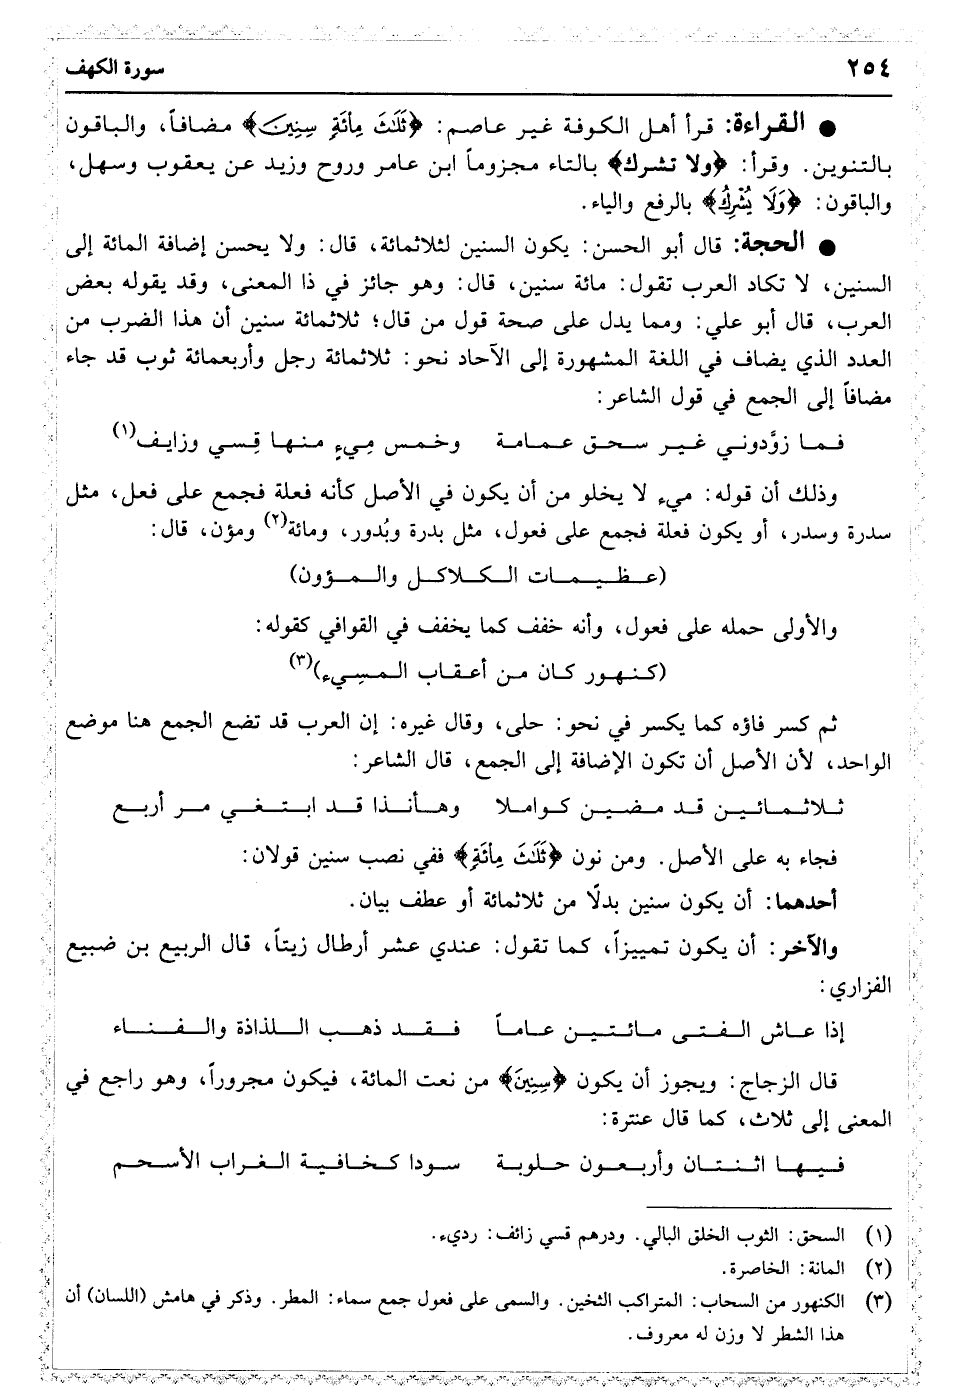 ٢٥٤ سورة الكهف
● القراءة: قرأ أهل الكوفة غير عاصم: ﴿ثَلَاثَ مِأْئَةٍ سِنِينَ﴾ مضافاً، والباقون
بالتنوين. وقرأ: ﴿ولا تشرك﴾ بالتاء مجزوماً ابن عامر وروح وزيد عن يعقوب وسهل،
والباقون: ﴿وَلَا يُشْرِكُ﴾ بالرفع والياء.
● الحجة: قال أبو الحسن: يكون السنين لثلاثمائة، قال: ولا يحسن إضافة المائة إلى
السنين، لا تكاد العرب تقول: مائة سنين، قال: وهو جائز في ذا المعنى، وقد يقوله بعض
العرب، قال أبو علي: ومما يدل على صحة قول من قال؛ ثلاثمائة سنين أن هذا الضرب من
العدد الذي يضاف في اللغة المشهورة إلى الآحاد نحو: ثلاثمائة رجل وأربعمائة ثوب قد جاء
مضافاً إلى الجمع في قول الشاعر:
فما زوَّدوني غير سحق عمامة وخمس مِيءٍ منها قِسي وزايف(١)
وذلك أن قوله: ميء لا يخلو من أن يكون في الأصل كأنه فعلة فجمع على فعل، مثل
سدرة وسدر، أو يكون فعلة فجمع على فعول، مثل بدرة وبُدور، ومائة(٢) ومؤن، قال:
(عظيمات الكلاكل والمؤون)
والأولى حمله على فعول، وأنه خفف كما يخفف في القوافي كقوله:
(كنهور كان من أعقاب المسِيء)(٣)
ثم كسر فاؤه كما يكسر في نحو: حلى، وقال غيره: إن العرب قد تضع الجمع هنا موضع
الواحد، لأن الأصل أن تكون الإضافة إلى الجمع، قال الشاعر:
ثلاثمائين قد مضين كواملا وهأنذا قد ابتغي مر أربع
فجاء به على الأصل. ومن نون ﴿ثَلَاثَ مِأْئَةٍ﴾ ففي نصب سنين قولان:
أحدهما: أن يكون سنين بدلًا من ثلاثمائة أو عطف بيان.
والآخر: أن يكون تمييزاً، كما تقول: عندي عشر أرطال زيتاً، قال الربيع بن ضبيع
الفزاري:
إذا عاش الفتى مائتين عاماً فقد ذهب اللذاذة والفناء
قال الزجاج: ويجوز أن يكون ﴿سِنِينَ﴾ من نعت المائة، فيكون مجروراً، وهو راجع في
المعنى إلى ثلاث، كما قال عنترة:
فيها اثنتان وأربعون حلوبة سودا كخافية الغراب الأسحم
(١) السحق: الثوب الخلق البالي. ودرهم قسي زائف: رديء.
(٢) المانة: الخاصرة.
(٣) الكنهور من السحاب: المتراكب الثخين. والسمى على فعول جمع سماء: المطر. وذكر في هامش (اللسان) أن
هذا الشطر لا وزن له معروف.